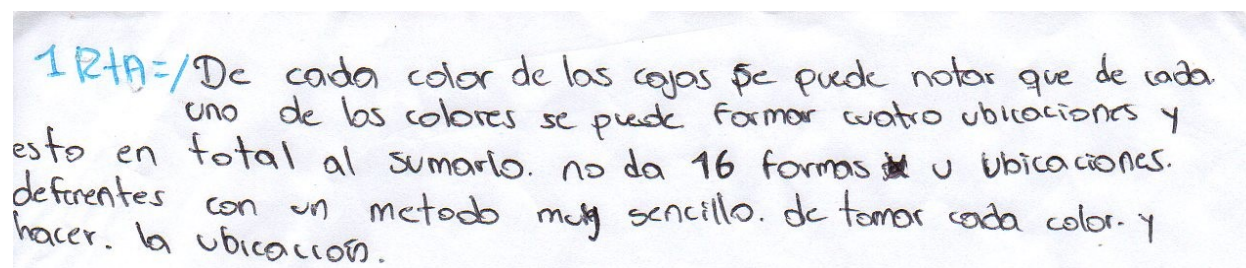 1 RtA=/De cada color de las cajas se puede notar que de cada.
uno de los colores se puede formar cuatro ubicaciones y
esto en total al sumarlo. no da 16 formas u ubicaciones.
deferentes con un metodo muy sencillo. de tomar cada color. y
hacer. la ubicación.